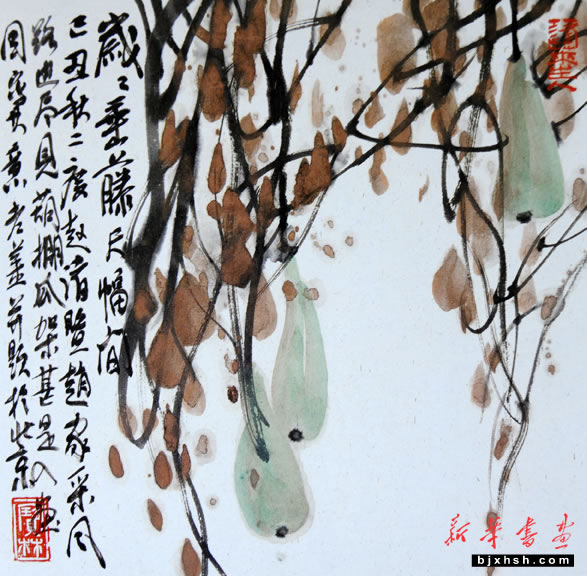 岁々垂藤尺幅间
己丑秋二度赴渚暨赵家采风
路边而见葫棚瓜架甚是入画
因写其意 老姜并题於北京
新华书画
bjxhsh.com